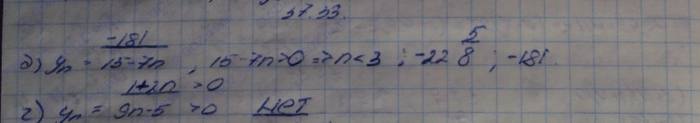 37.33.
в) yₙ = -181/(15-7n), 15-7n>0 => n<3 ; -22 5/8 ; -181.
г) yₙ = (1+2n)/(9n-5) >0 нет